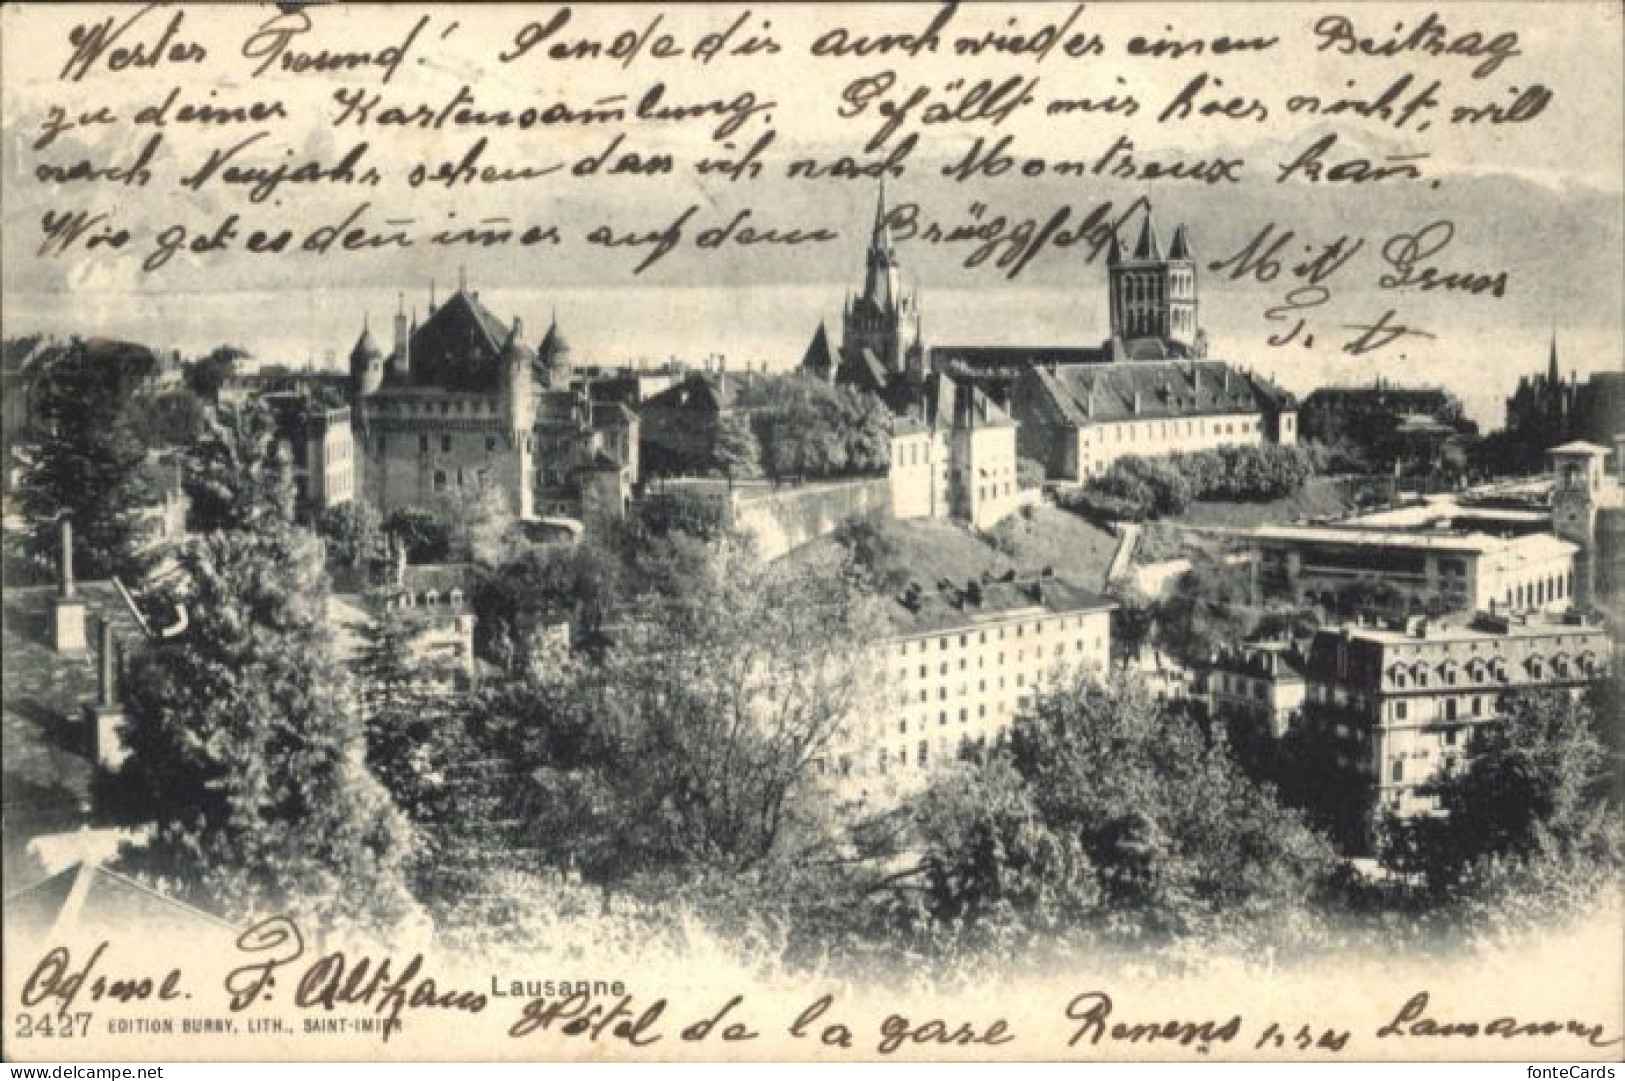 Werter Freund! Sende dir auch wieder einen Beitrag
zu deiner Kartensam̄lung. Gefällt mir hier nicht, will
nach Neujahr sehen dass ich nach Montreux kan̄.
Wie get es den̄ im̄er auf dem Brüggfeld
Mit Gruss
F. A.
Lausanne
Adresse. F. Althaus Hôtel de la gare Renens près Lausanne
2427 EDITION BURGY, LITH., SAINT-IMIER
delcampe.net
fonteCards